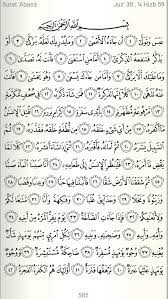 Surat Abasa Juz' 30, ¼ Hizb 59
بِسْمِ اللَّهِ الرَّحْمَٰنِ الرَّحِيمِ
عَبَسَ وَتَوَلَّىٰ ١ أَن جَاءَهُ الْأَعْمَىٰ ٢ وَمَا يُدْرِيكَ لَعَلَّهُ يَزَّكَّىٰ ٣ أَوْ
يَذَّكَّرُ فَتَنفَعَهُ الذِّكْرَىٰ ٤ أَمَّا مَنِ اسْتَغْنَىٰ ٥ فَأَنتَ لَهُ تَصَدَّىٰ ٦
وَمَا عَلَيْكَ أَلَّا يَزَّكَّىٰ ٧ وَأَمَّا مَن جَاءَكَ يَسْعَىٰ ٨ وَهُوَ يَخْشَىٰ ٩
فَأَنتَ عَنْهُ تَلَهَّىٰ ١٠ كَلَّا إِنَّهَا تَذْكِرَةٌ ١١ فَمَن شَاءَ ذَكَرَهُ ١٢ فِي صُحُفٍ
مُّكَرَّمَةٍ ١٣ مَّرْفُوعَةٍ مُّطَهَّرَةٍ ١٤ بِأَيْدِي سَفَرَةٍ ١٥ كِرَامٍ بَرَرَةٍ ١٦ قُتِلَ
الْإِنسَانُ مَا أَكْفَرَهُ ١٧ مِنْ أَيِّ شَيْءٍ خَلَقَهُ ١٨ مِن نُّطْفَةٍ خَلَقَهُ فَقَدَّرَهُ ١٩
ثُمَّ السَّبِيلَ يَسَّرَهُ ٢٠ ثُمَّ أَمَاتَهُ فَأَقْبَرَهُ ٢١ ثُمَّ إِذَا شَاءَ أَنشَرَهُ ٢٢ كَلَّا لَمَّا
يَقْضِ مَا أَمَرَهُ ٢٣ فَلْيَنظُرِ الْإِنسَانُ إِلَىٰ طَعَامِهِ ٢٤ أَنَّا صَبَبْنَا الْمَاءَ صَبًّا ٢٥
ثُمَّ شَقَقْنَا الْأَرْضَ شَقًّا ٢٦ فَأَنبَتْنَا فِيهَا حَبًّا ٢٧ وَعِنَبًا وَقَضْبًا ٢٨
وَزَيْتُونًا وَنَخْلًا ٢٩ وَحَدَائِقَ غُلْبًا ٣٠ وَفَاكِهَةً وَأَبًّا ٣١ مَّتَاعًا لَّكُمْ
وَلِأَنْعَامِكُمْ ٣٢ فَإِذَا جَاءَتِ الصَّاخَّةُ ٣٣ يَوْمَ يَفِرُّ الْمَرْءُ مِنْ أَخِيهِ ٣٤
وَأُمِّهِ وَأَبِيهِ ٣٥ وَصَاحِبَتِهِ وَبَنِيهِ ٣٦ لِكُلِّ امْرِئٍ مِّنْهُمْ يَوْمَئِذٍ شَأْنٌ
يُغْنِيهِ ٣٧ وُجُوهٌ يَوْمَئِذٍ مُّسْفِرَةٌ ٣٨ ضَاحِكَةٌ مُّسْتَبْشِرَةٌ ٣٩ وَوُجُوهٌ
يَوْمَئِذٍ عَلَيْهَا غَبَرَةٌ ٤٠ تَرْهَقُهَا قَتَرَةٌ ٤١ أُولَٰئِكَ هُمُ الْكَفَرَةُ الْفَجَرَةُ ٤٢
585